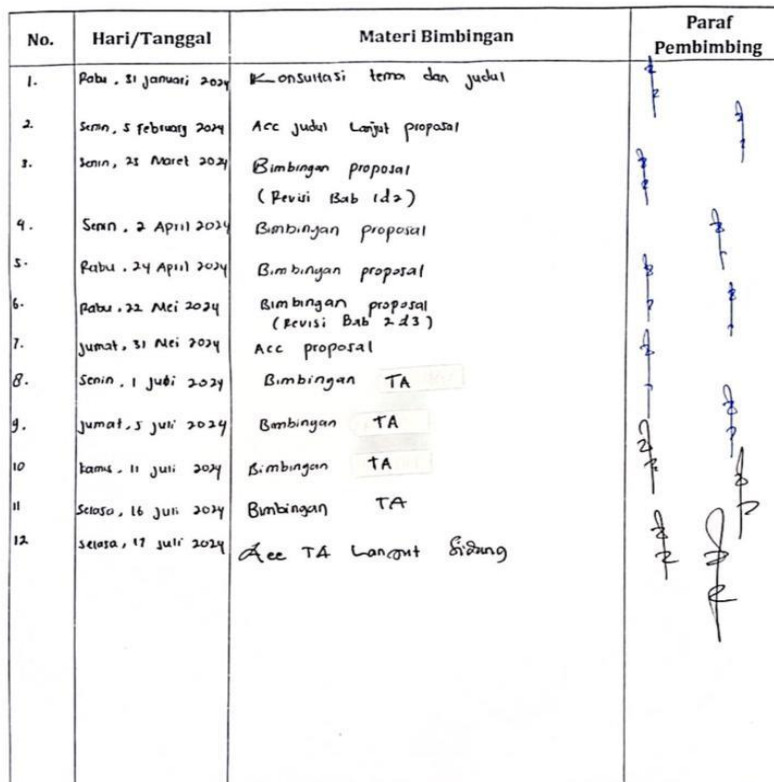 No. Hari/Tanggal Materi Bimbingan Paraf Pembimbing
1. Rabu, 31 Januari 2024 Konsultasi tema dan judul
2. Senin, 5 February 2024 Acc judul Lanjut proposal
3. Senin, 25 Maret 2024 Bimbingan proposal
(Revisi Bab 1d2)
4. Senin, 2 April 2024 Bimbingan proposal
5. Rabu, 24 April 2024 Bimbingan proposal
6. Rabu, 22 Mei 2024 Bimbingan proposal
(Revisi Bab 2d3)
7. Jumat, 31 Mei 2024 Acc proposal
8. Senin, 1 Juli 2024 Bimbingan TA
9. Jumat, 5 Juli 2024 Bimbingan TA
10 Kamis, 11 Juli 2024 Bimbingan TA
11 Selasa, 16 Juli 2024 Bimbingan TA
12 Selasa, 17 Juli 2024 Acc TA Lanjut Sidang